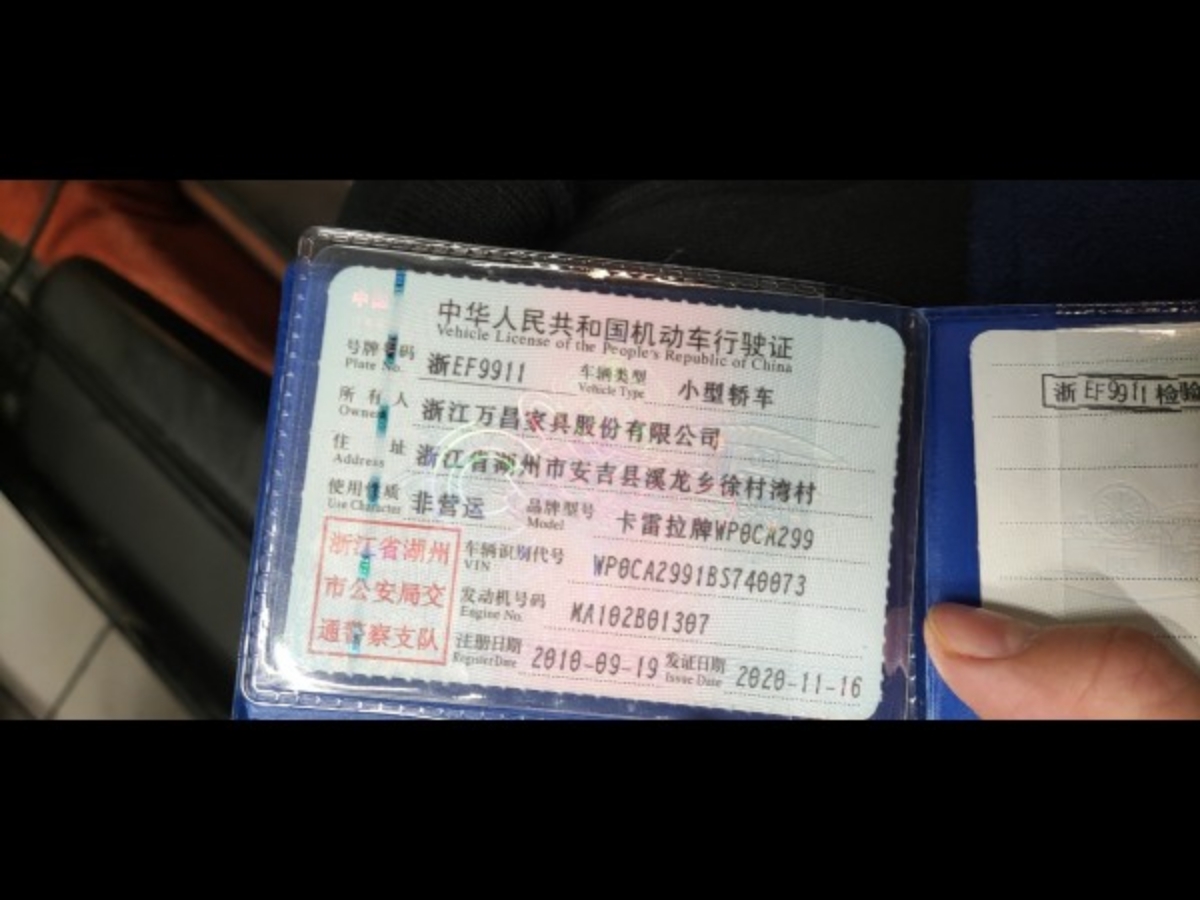 中国
中华人民共和国机动车行驶证
Vehicle License of the People's Republic of China
号牌号码 浙EF9911 车辆类型 小型轿车
Plate No. Vehicle Type
所有人 浙江万昌家具股份有限公司
Owner
住址 浙江省湖州市安吉县溪龙乡徐村湾村
Address
使用性质 非营运 品牌型号 卡雷拉牌WP0CA299
Use Character Model
浙江省湖州
市公安局交
通警察支队
车辆识别代号 WP0CA2991BS740073
VIN
发动机号码 MA102B01307
Engine No.
注册日期 2010-09-19 发证日期 2020-11-16
Register Date Issue Date
浙EF9911检验